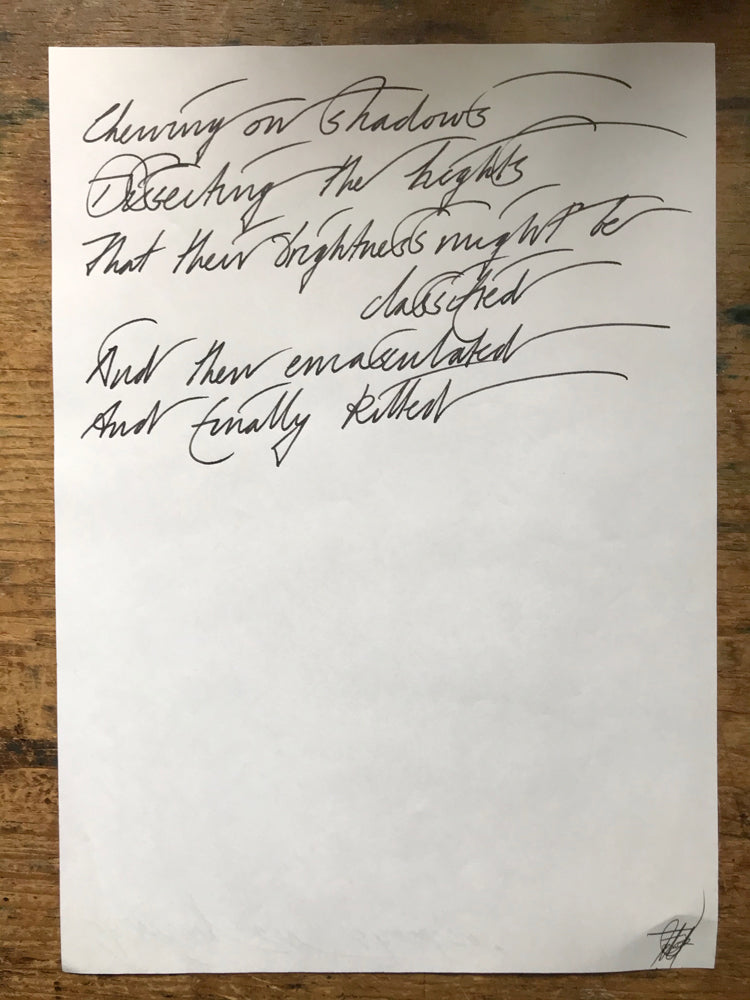 Chewing on shadows
Dissecting the heights
That their brightness might be
classified
And then emasculated
And finally killed